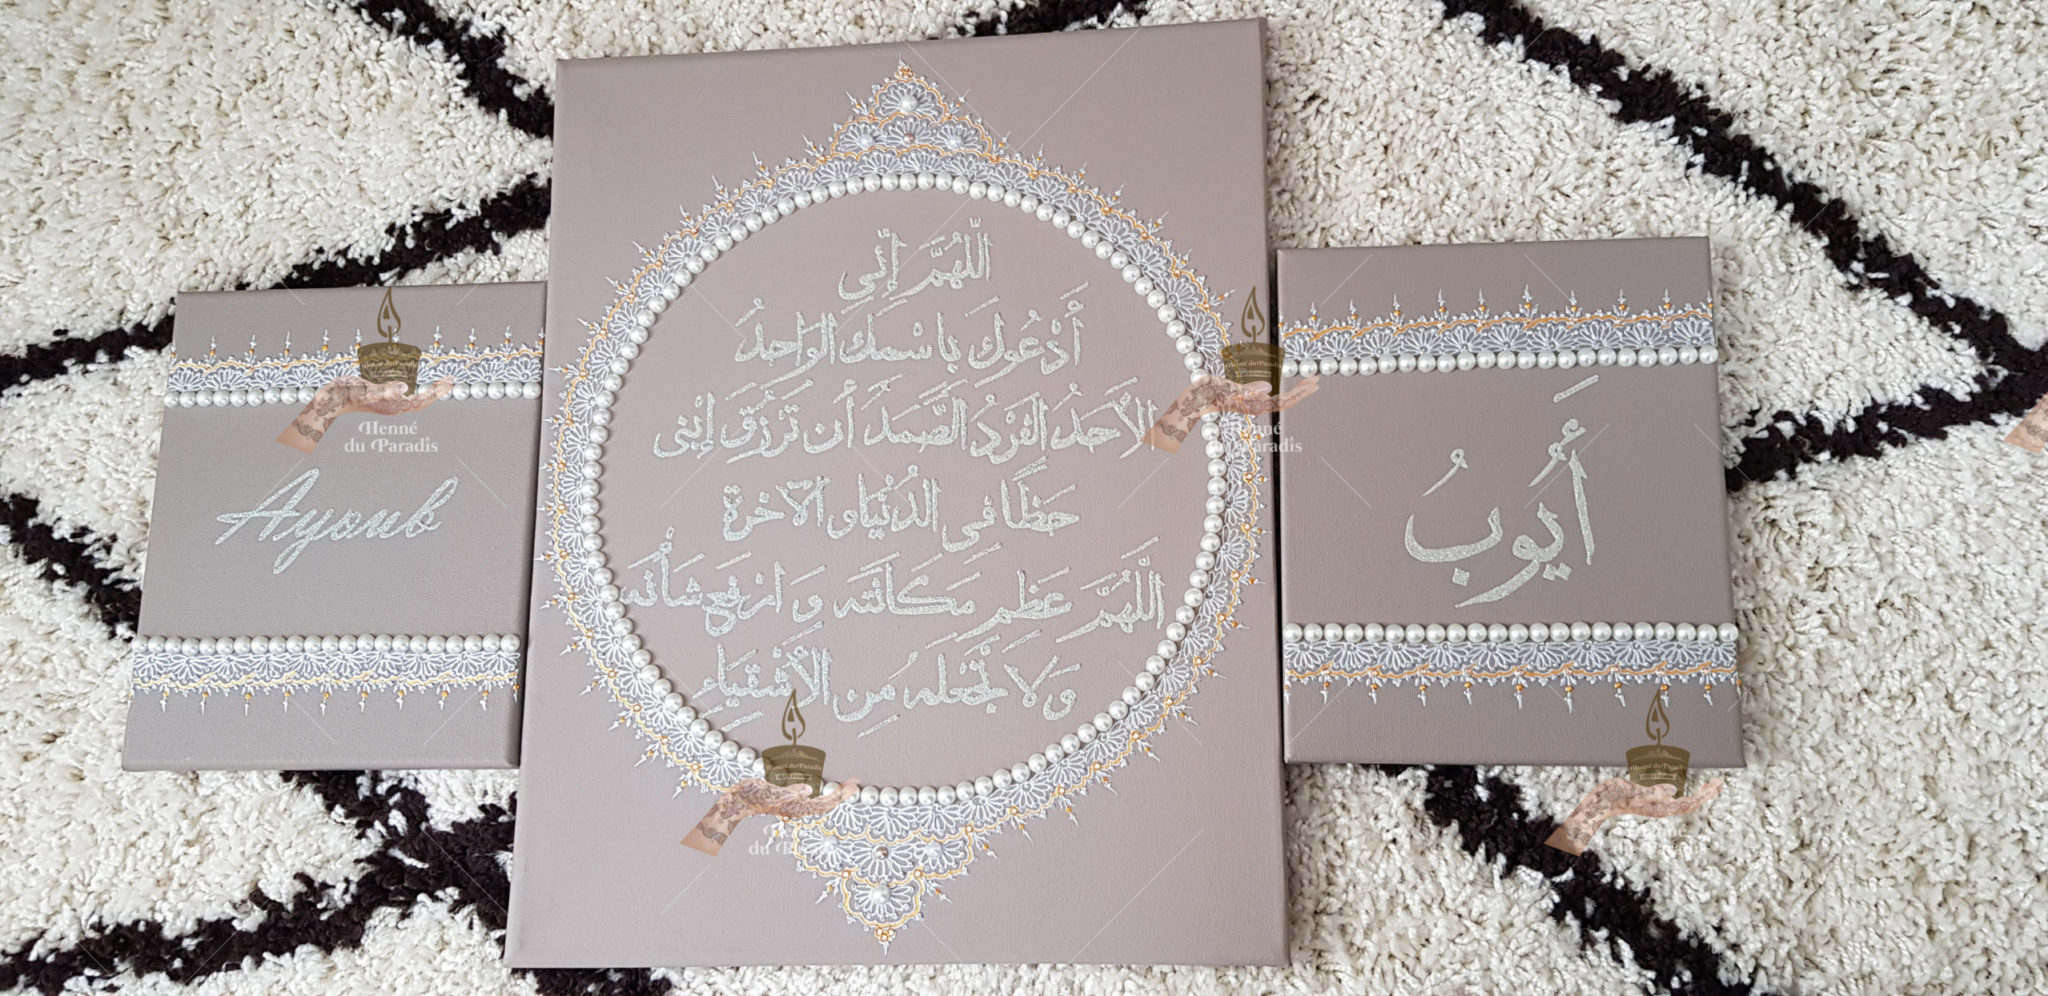 Ayoub
اللّهُمَّ إنّي
أَدْعُوكَ بِاسْمِكَ الوَاحِدُ
الأَحَدُ الفَرْدُ الصَّمَدَ أَن تَرْزُقَ إبْنِى
حَظًا فى الدُنْيَا و الآخرة
اللّهُمَّ عَظِم مَكَانَتَه وَ ارفع شَأْنَه
وَلَا تَجْعَله مِن الأَشْقِيَاءِ
أَيُوبُ
Henné
du Paradis
Henné
du Paradis
Henné
du Paradis